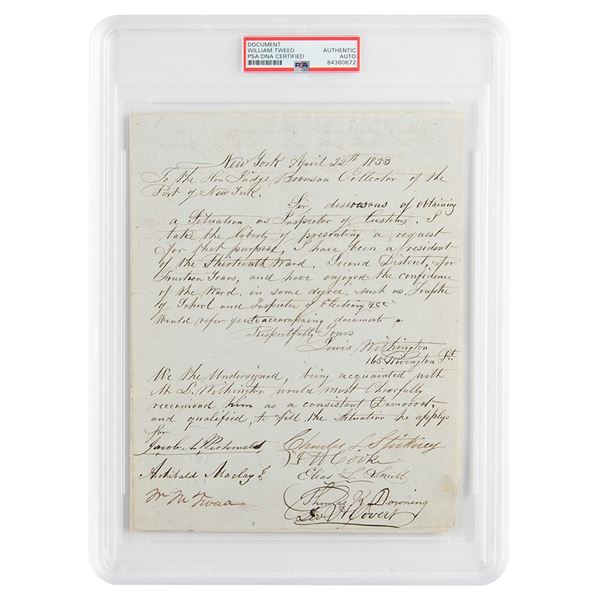 DOCUMENT
WILLIAM TWEED
PSA/DNA CERTIFIED
AUTHENTIC
AUTO
84360672
PSA
New York April 22th 1853
To the Hon Judge Bronson Collector of the
Port of New York.
Sir, desirous of obtaining
a Situation as Inspector of Customs. I
take the liberty of presenting a request
for that purpose, I have been a resident
of the Thirteenth Ward, Second District, for
Fourteen Years, and have enjoyed the confidence
of the Ward, in some degree, such as
of School and Inspector of Elections &c
Would refer you to accompaning documents
Respectfully Yours
Lewis Withington
165 Rivington St.
We the Undersigned, being acquainted with
Mr L. Withington would most Chearfully
recommend him as a consistant Democrat,
and qualified, to fill the Situation he applys
for
Jacob A.
Charles L.
Cooke
Archibald Maclay
Elias L. Smith
Wm M Tweed
Thomas K Downing
Geo H Covert